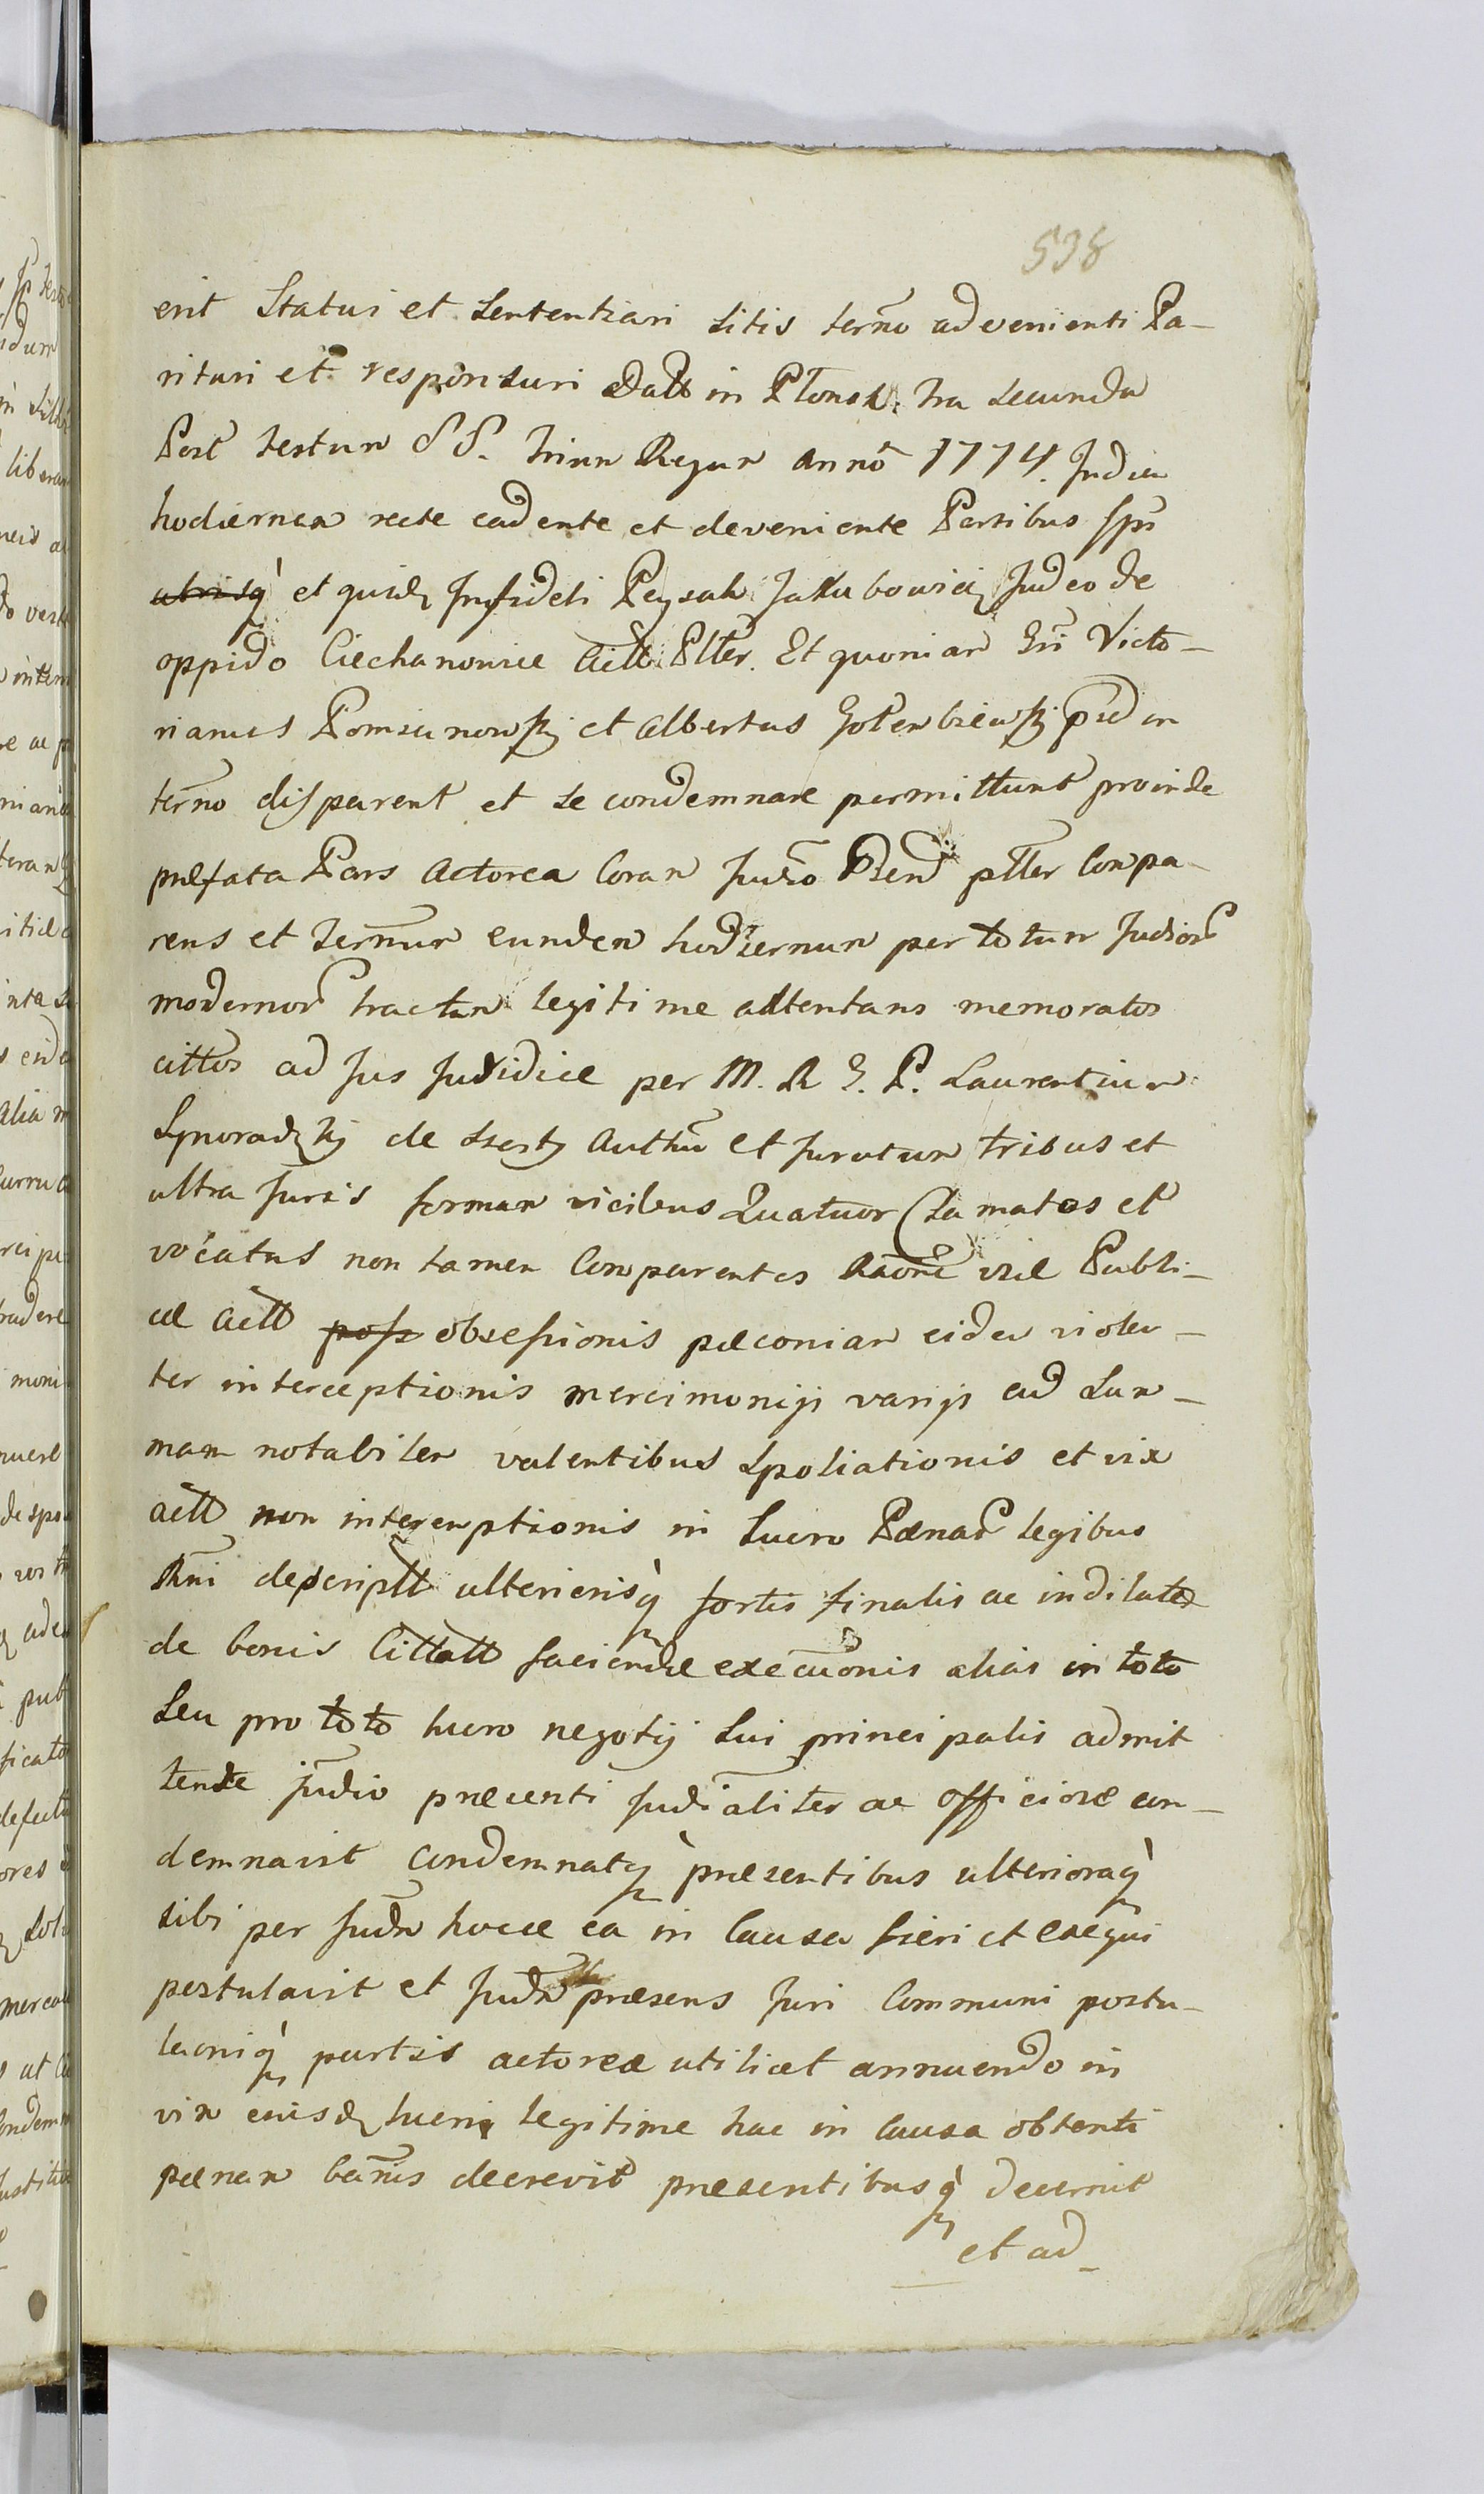 538
erit Statui et Sententiari Litis term̃o advenienti Pa-
rituri et responsuri Datt in Płonsk. fra secunda
Post festum SS. Trium Regum Anno 1774. In diem
hodiernam recte cadente et deveniente Partibus Ipsis
utrisq̀ et quidem Infideli Peysak Jakubowicz Judeo de
oppido Ciechanowiee Actt Plter. Et quoniam Gñi Victo-
rianus Pomianowski et Albertus Gołembiewski pnd in
term̃o disparent et se condemnare permittunt proinde
præfata Pars Actorea Coram Judio Præsend plter Compa-
rens et Termum eundem hodiernum per totum Judior
modernor tractum legitime attentans memoratos
cittos ad Jus Judidice per M. R G. P. Laurentium
de Authm et Juratum tribus et
ultra Juris formam vicibus Quatuor Clamatos et
vocatus non tamen Comparentes Raõne viæ Publi-
cæ Actt poss obsessionis pæconiar eidem violen-
ter interceptionis mercimonijs varijs ad Sum-
mam notabiler valentibus Spoliationis et vix
actt non interemptionis in Lucro Pænar legibus
Rñi descriptt ulteriorisq̀ fortis finalis ac indilatæ
de bonis Cittatt faciendæ execuõnis alias in toto
Seu pro toto lucro negotij Sui principalis admit
tendæ judio præsenti Judialiter ac officiose con-
demnavit Condemnatq̀ præsentibus ulterioraq̀
sibi per Judm hocce ea in Causa fieri et exequi
postulavit et Judm præsens Juri Communi postu-
laoniq̀ partis actoreæ utilicet annuendo in
vim eiusdem lucri legitime hac in Causa obtenti
pænam bañis decrevit præsentibusq̀ decernit
et ad_